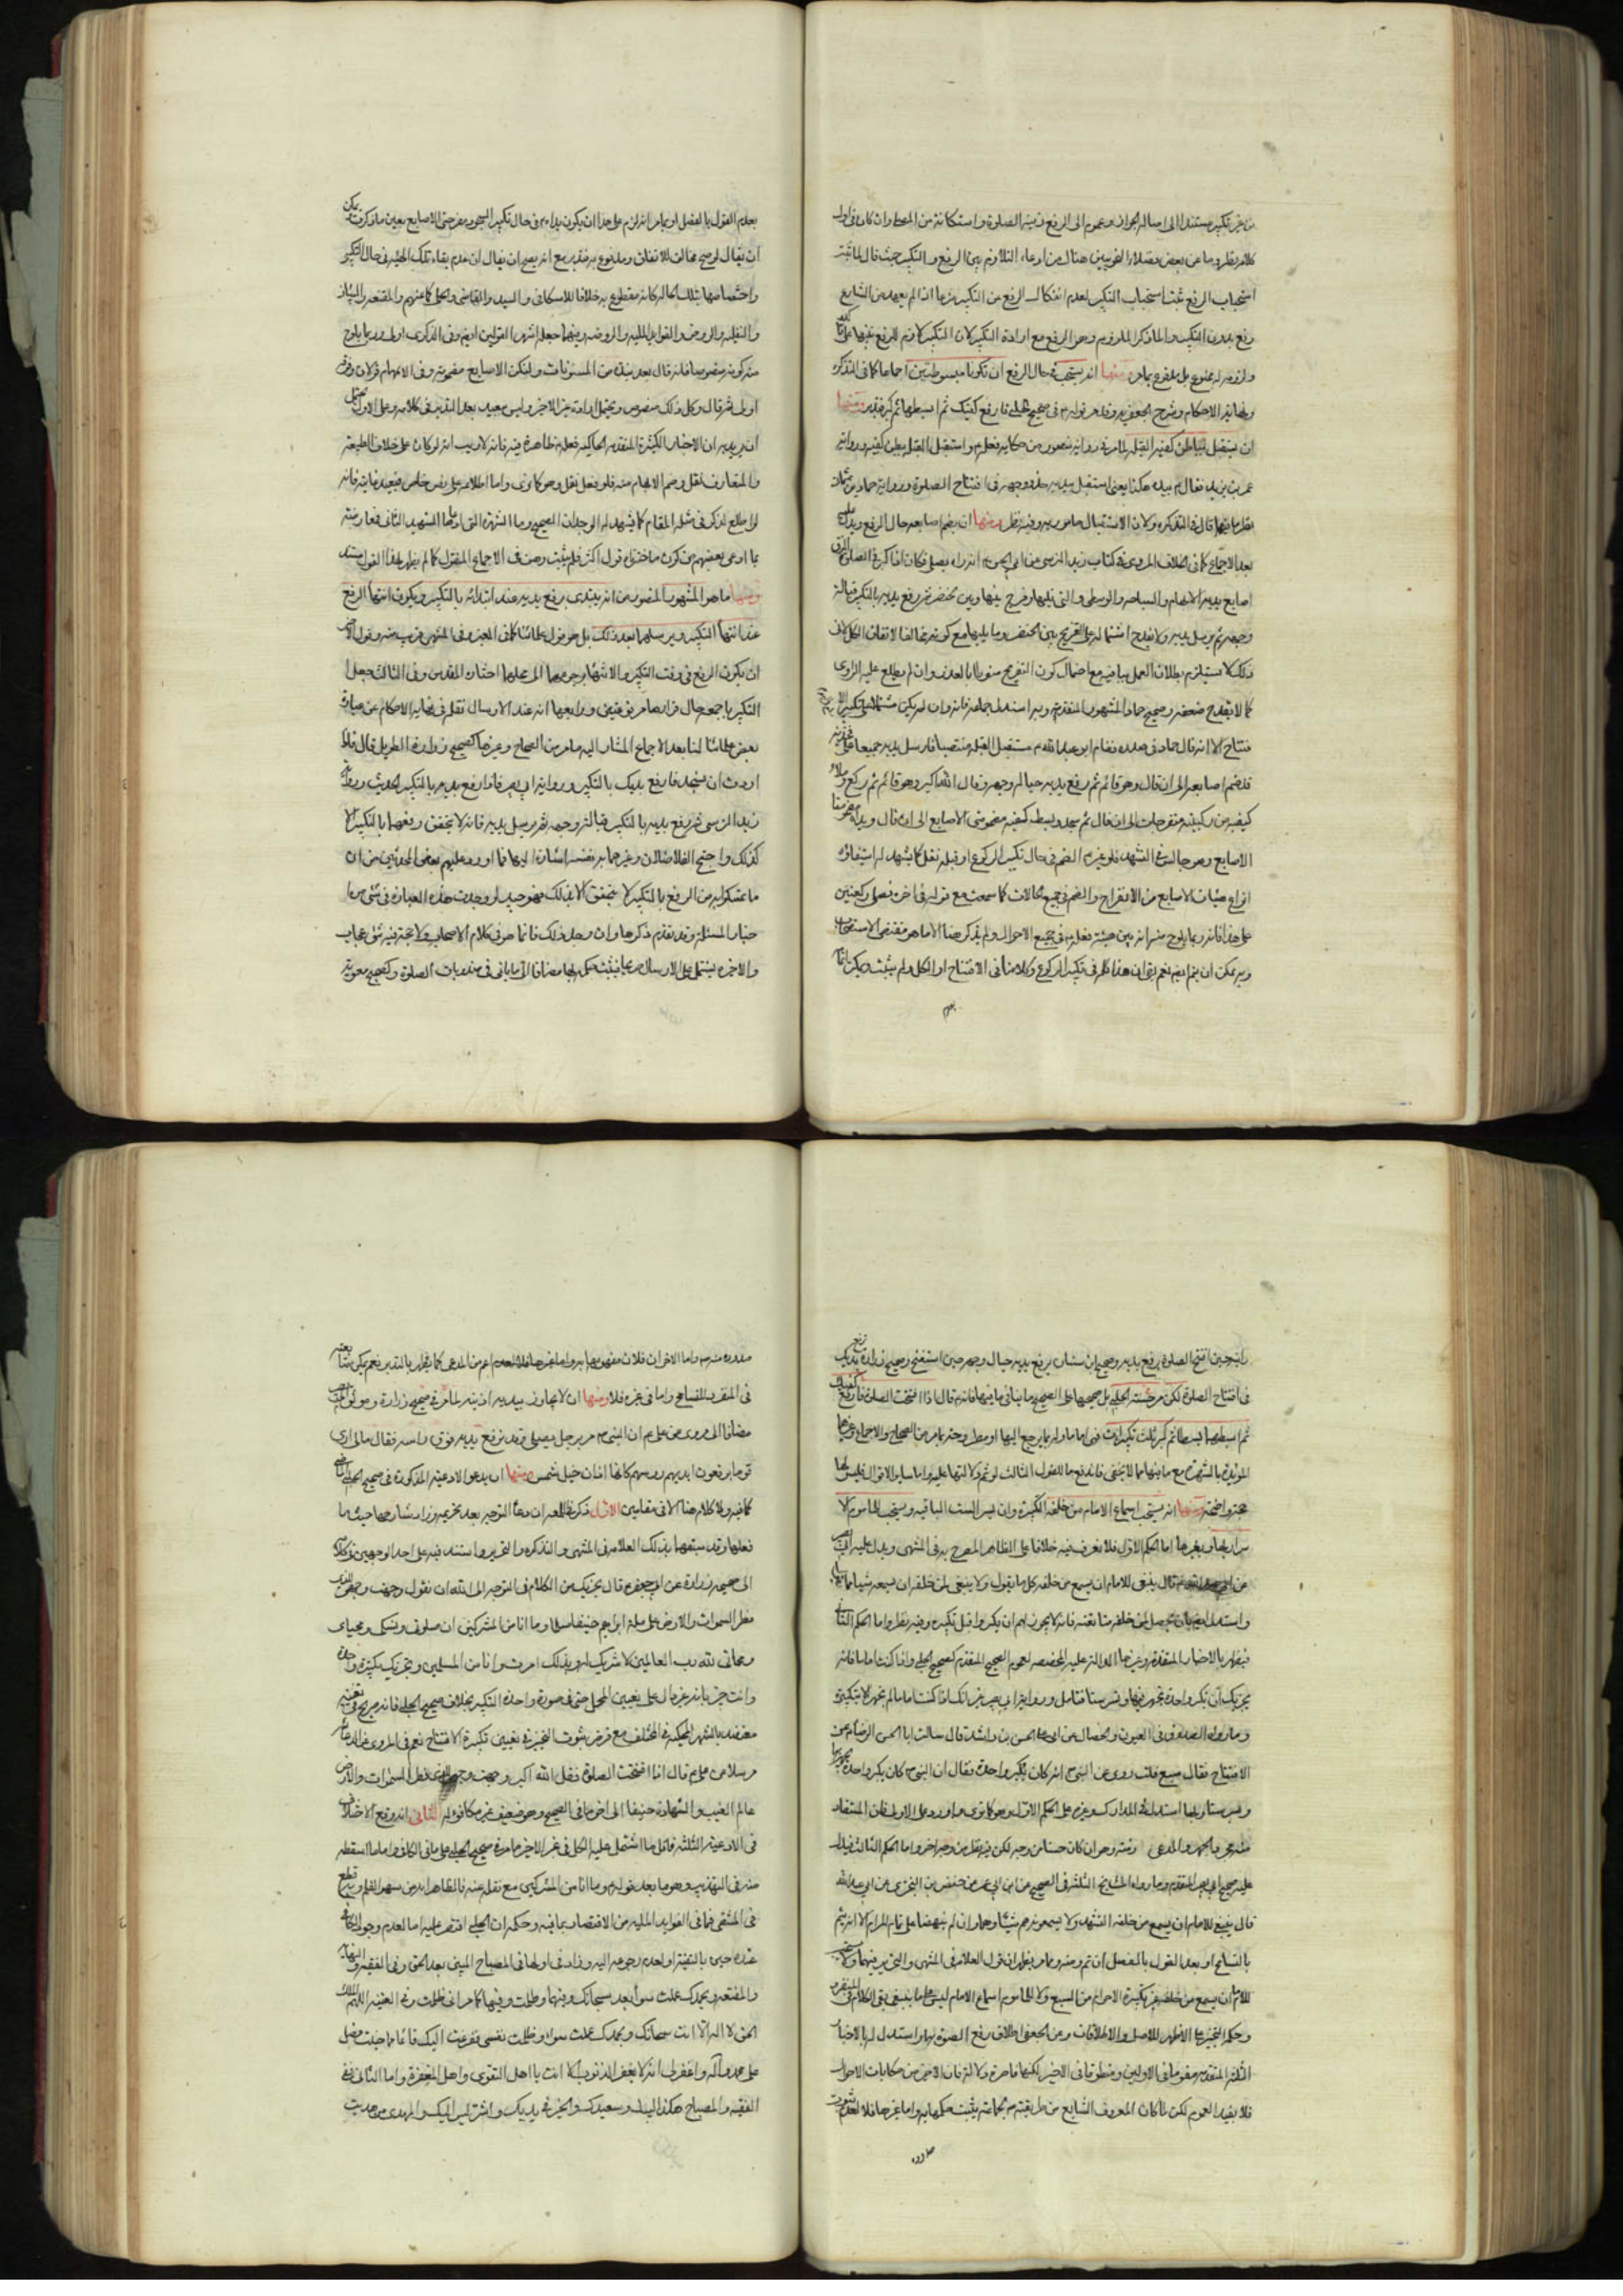 من غير تكبير مستندا الى اصالة الجواز وعموم الى الرفع زينة الصلوة واستكانة من المصلي وان كان في اول
كلامه نظر وما عن بعض فضلاء القزويين هنا من ادعاء التلازم بين الرفع والتكبير حيث قال لما ثبت
استحباب الرفع ثبت استحباب التكبير لعدم انفكاك الرفع عن التكبير منها اذ لم يعهد من الشارع
رفع بدون التكبير والماذكر الملزوم وهو الرفع مع ارادة التكبير لان التكبير لازم للرفع
ولزومه له ممنوع بل مدفوع بما مر ومنها انه يستحب في حال الرفع ان تكونا مبسوطتين اجماعا كما في التذكرة
ونهاية الاحكام وشرح الجعفرية وقد مر قوله في صحيح الحلبي فارفع كفيك ثم ابسطهما ثم كبر ومنها
ان يستقبل بباطن كفيه القبلة لما مر في رواية منصور من حكاية فعله واستقبل القبلة ببطن كفيه ورواية
عمر بن يزيد فقال بيده هكذا يعني استقبل بيديه حذو وجهه في افتتاح الصلوة ورواية حماد بن عثمان
قال في التذكرة ولان الاستقبال مامور به وفيه نظر ومنها ان يضم اصابعه حال الرفع ويدل عليه
بعد الاجماع كما في الخلاف المروي في كتاب زيد النرسي عن ابي الحسن انه راه يصلي فكان اذا كبر في الصلوة الزق
اصابع يديه الابهام والسبابة والوسطى والتي تليها وفرج بينها وبين الخنصر ثم رفع يديه بالتكبير قبالة
وجهه ثم يرسل يديه ولا يقدح اشتماله على التفريج بين الخنصر وما يليها مع كونه مخالفا لاتفاق الكل لان
ذلك لا يستلزم بطلان العمل بباقيه مع احتمال كون التفريج مسبوقا بالعذر وان لم يطلع عليه الراوي
كما لا يقدح ضعفه وصحيح حماد المشهور المتقدم وبه استدل جماعة فانه وان لم يكن مشتملا على تكبيرة الا
فتتاح الا انه قال حماد في صدره فقام ابو عبد الله مستقبل القبلة منتصبا فارسل يديه جميعا على فخذيه
قد ضم اصابعه الى ان قال وهو قائم ثم رفع يديه حيال وجهه وقال الله اكبر وهو قائم ثم ركع وملأ
كفيه من ركبتيه متفرجات الى ان قال ثم سجد وبسط كفيه مضمومتي الاصابع الى ان قال ويداه مضمومتا
الاصابع وهو جالس في التشهد
انواع هيئات الاصابع من الانفراج والضم في جميع الحالات كما سمعت مع قوله في اخره فصلى ركعتين
على هذا فانه ربما يلوح منه انه بين هيئة فعله في جميع الاحوال ولم يذكر هنا الا ما هو مقتضى الاستحباب
وبه يمكن ان يتم ايضا نعم بقي ان هذا كله في تكبير الركوع وكلامنا في الافتتاح او الكل ولم يثبت
بعدم
بعدم القول بالفصل او بما مر انه لزم على هذا ان يكون يداه في حال تكبير السجود مفرجتي الاصابع بعين ما ذكرت يمكن
ان يقال لو صح مخالف للاتفاق ومدفوع به فتدبر مع انه يصح ان يقال ان عدم بقاء تلك الهيئة في حال التكبير
واختصاصها بتلك الحالة كانه مقطوع به خلافا للاسكافي والسيد والقاضي والحلي كما عنهم والمقنعة والبيان
والنفلية والروض والفوائد الملية والروضة وفيهما جعله اشهر القولين ايضا وفي الذكرى اولى وربما يلوح
منه كونه منصوصا فانه قال بعد نبذة من المسنونات ولتكن الاصابع مضمومة وفي الابهام قولان وفرقه
اولى ثم قال وكل ذلك منصوص ويحتمل ارادة غير الاخير وليس ببعيد بعد التدبر في كلامه وعلى الاول يحتمل
ان يريد به ان الاخبار الكثيرة المتقدمة الحاكية فعله ظاهرة فيه فانه لا ريب انه لو كان على خلاف الطبيعة
والمتعارف لنقل وضم الابهام منه فلو فعل لنقل وهو كما ترى واما اطلاعه على نص خاص فبعيد غايته فانه
لو اطلع لذكر في مثل المقام كما يشهد له الوجدان الصحيح وما الشهرة التي ادعاها الشهيد الثاني فمعارضة
بما ادعى بعضهم من كون ما اخترناه قول الاكثر فلم يثبت وصف الاجماع المنقول كما لم يظهر لهذا القول مستند
ومنها ما هو المشهور المنصور من انه يبتدئ برفع يديه عند ابتدائه بالتكبير ويكون انتهاء الرفع
عند انتهاء التكبير ويرسلهما بعد ذلك بل هو قول علمائنا كما في المعتبر وفي المنتهى قريب منه وقول الاخر
ان يكون الرفع في وقت التكبير والانتهاء
التكبير باجمعه حال قرارهما مرفوعتين ورابعها انه عند الارسال نقله في نهاية الاحكام عن عبارة
بعض علمائنا لنا بعد الاجماع المشار اليه ما مر من الصحاح وغيرها كصحيح زرارة الطويل قال فاذا
اردت ان تسجد فارفع يديك بالتكبير ورواية ابي بصير فاذا رفع يديه بالتكبير الحديث ورواية
زيد النرسي ثم يرفع يديه بالتكبير قبالة وجهه ثم يرسل يديه فانه لا يتحقق رفعهما بالتكبير الا
كذلك واحتج الفاضلان وغيرهما به نفسه اشارة اليها فما اورد عليهم بعض المحدثين من ان
ما تمسكوا به من الرفع بالتكبير لا يتحقق الا بذلك فهو جيد لو وجدت هذه العبارة في شئ من ا
خبار المسئلة وقد تقدم ذكرها وان وجد ذلك فانما هو في كلام الاصحاب ولا حجة فيه شئ عجاب
والاخير يشتمل على الارسال فربما يثبت حكمه بها مضافا الى ما ياتي في مندوبات الصلوة وكصحيح معوية
رايته حين افتتح الصلوة يرفع يديه وصحيح ابن سنان يرفع يديه حيال وجهه حين استفتح وصحيح زرارة ترفع يديك
في افتتاح الصلوة لكن مرت حسنة الحلبي بل صحيحها على الصحيح ما ينافي ما فيها فانه قال اذا افتتحت الصلوة فارفع كفيك
ثم ابسطهما بسطا ثم كبر ثلث تكبيرات فهي اما ماولة بما يرجع اليها او مطروحة بما مر من الصحاح والاجماع وغيرها
المؤيدة بالشهرة مع ما فيها مما لا يخفى فاندفع ما للقول الثالث لو ثم دلالتها عليه واما ساير الاقوال فليس لها
حجة واضحة ومنها انه يستحب اسماع الامام من خلفه التكبيرة وان يسر الست الباقية ويستحب للماموم الا
سرار بها وبغيرها اما الحكم الاول فلا نعرف فيه خلافا على الظاهر المصرح به في المنتهى ويدل عليه
عن ابي عبد الله قال ينبغي للامام ان يسمع من خلفه كل ما يقول ولا ينبغي لمن خلفه ان يسمعه شيئا مما يقول
واستدل ايضا بان يحصل لمن خلفه متابعته فانه لا يجوز لهم ان يكبروا قبل تكبيره وفيه نظر واما الحكم الثاني
فيظهر بالاخبار المتقدمة وغيرها الدالة عليه المخصصة لعموم الصحيح المتقدم كصحيح الحلبي واذا كنت اماما فانه
يجزيك ان تكبر واحدة تجهر فيها وتسر ستا فتامل ورواية ابي بصير غير انك اذا كنت اماما لم تجهر الا بتكبيرة
وما رواه الصدوق في العيون والخصال عن ابي علي الحسن بن راشد قال سالت ابا الحسن الرضا عن تكبيرة
الافتتاح فقال سبع قلت روي عن النبي انه كان يكبر واحدة فقال ان النبي كان يكبر واحدة يجهر بها
ويسر ستا وبها استدل في المدارك وغيره على الحكم الاول وهو كما ترى واورد على الاول بان المستفاد
منه مجرد الجهر والمدعى رفعه وهو ان كان حسنا من وجه لكن فيه نظر من وجه اخر واما الحكم الثالث فيدل
عليه صحيح ابي بصير المتقدم وما رواه المشايخ الثلثة في الصحيح عن ابن ابي عمير عن حفص بن البختري عن ابي عبد الله
قال ينبغي للامام ان يسمع من خلفه التشهد ولا يسمعونه هم شيئا وهما وان لم ينهضا على تمام المرام الا انه يتم
بالتسامح او بعدم القول بالفصل ان تم ومنه ومما مر يظهر ان قول العلامة في المنتهى والتحرير فيهما ولا يستحب
للامام ان يسمع من خلفه غير تكبيرة الاحرام من السبع ولا للماموم اسماع الامام ليس على ما ينبغي بقي الكلام في المنفرد
وحكمه التخيير على الاظهر للاصل والاطلاقات وعن الجعفي اطلاق رفع الصوت بها واستدل له بالاخبار
الثلثة المتقدمة مفهوما في الاولين ومنطوقا في الاخير لكنها قاصرة دلالة فان الاخير من حكايات الاحوال
فلا يفيد العموم لكن لما كان المعروف الشايع من طريقته الجماعة يثبت حكمها به واما غيرها فلا لعدم ثبوت
صدوره
صدوره منه واما الاخران فلان مفهومهما به واما غيرها فلا لعدم اعم من المدعى كما يظهر بالتدبر نعم يمكن متابعته
في المنفرد للتسامح واما في غيره فلا ومنها ان لا يتجاوز بيديه اذنيه لما مر في صحيح زرارة وموثق ابي بصير
مضافا الى مروي عن علي ان النبي مر برجل يصلي وقد رفع يديه فوق راسه فقال ما لي ارى
قوما يرفعون ايديهم رؤسهم كانها اذان خيل شمس ومنها ان يدعو الادعية المذكورة في صحيح الحلبي
كما فيه ولا كلام هنا الا في مقامين الاول ذكر الفاضلان دعاء التوجه بعد تحريمه وزاد شارحها حيث ما
فعلها وقد سبقهما بذلك العلامة في المنتهى والتذكرة والتحرير واستند فيه على احد الوجهين
الى صحيحة زرارة عن ابي جعفر قال يجزيك من الكلام في التوجه الى الله ان تقول وجهت وجهي للذي
فطر السموات والارض على ملة ابراهيم حنيفا مسلما وما انا من المشركين ان صلوتي ونسكي ومحياي
ومماتي لله رب العالمين لا شريك له وبذلك امرت وانا من المسلمين ويجزيك تكبيرة واحدة
وانت خبير بانه غير دال على تعيين المحل حتى في صورة واحدة التكبير بخلاف صحيح الحلبي فانه صريح في تعيينه
معتضد بالشهرة المحكية في المختلف مع فرض ثبوت التخيير في تعيين تكبيرة الافتتاح نعم في المروي في الدعائم
مرسلا عن علي قال اذا افتتحت الصلوة فقل الله اكبر وجهت وجهي للذي فطر السموات والارض
عالم الغيب والشهادة حنيفا الى اخر ما في الصحيح وهو ضعيف غير مكافؤ له الثاني انه وقع الاختلاف
في الادعية الثلثة فاقل ما اشتمل عليه الكل في غير الاخير ما مر في صحيح الحلبي على ما في الكافي واما ما اسقطه
منه في التهذيب وهو ما بعد قوله وما انا من المشركين مع نقله عنه فالظاهر انه من سهو القلم وبه قطع
في المنتقى فما في الفوايد الملية من الاقتصار بما فيه وحكمه ان الحلبي اقتصر عليه اما لعدم وجود الكافي
عنده حين بالتقية او لعدم رجوعه اليه وزاد في اولها في المصباح المبين بعد الحق وفي الفقيه والنهاية
والمقنعة وبحمدك عملت سوأ بعد سبحانك وفيها وظلمت وفيها كما مر اني ظلمت وفي الغنية اللهم انت الملك
الحق لا اله الا انت سبحانك وبحمدك عملت سوءا وظلمت نفسي ففزعت اليك تائبا مما جنيت فصل
على محمد وآله واغفر لي انه لا يغفر الذنوب الا انت يا اهل التقوى واهل المغفرة واما الثاني ففي
الفقيه والمصباح هكذا لبيك وسعديك والخير في يديك والشر ليس اليك والمهدي من هديت